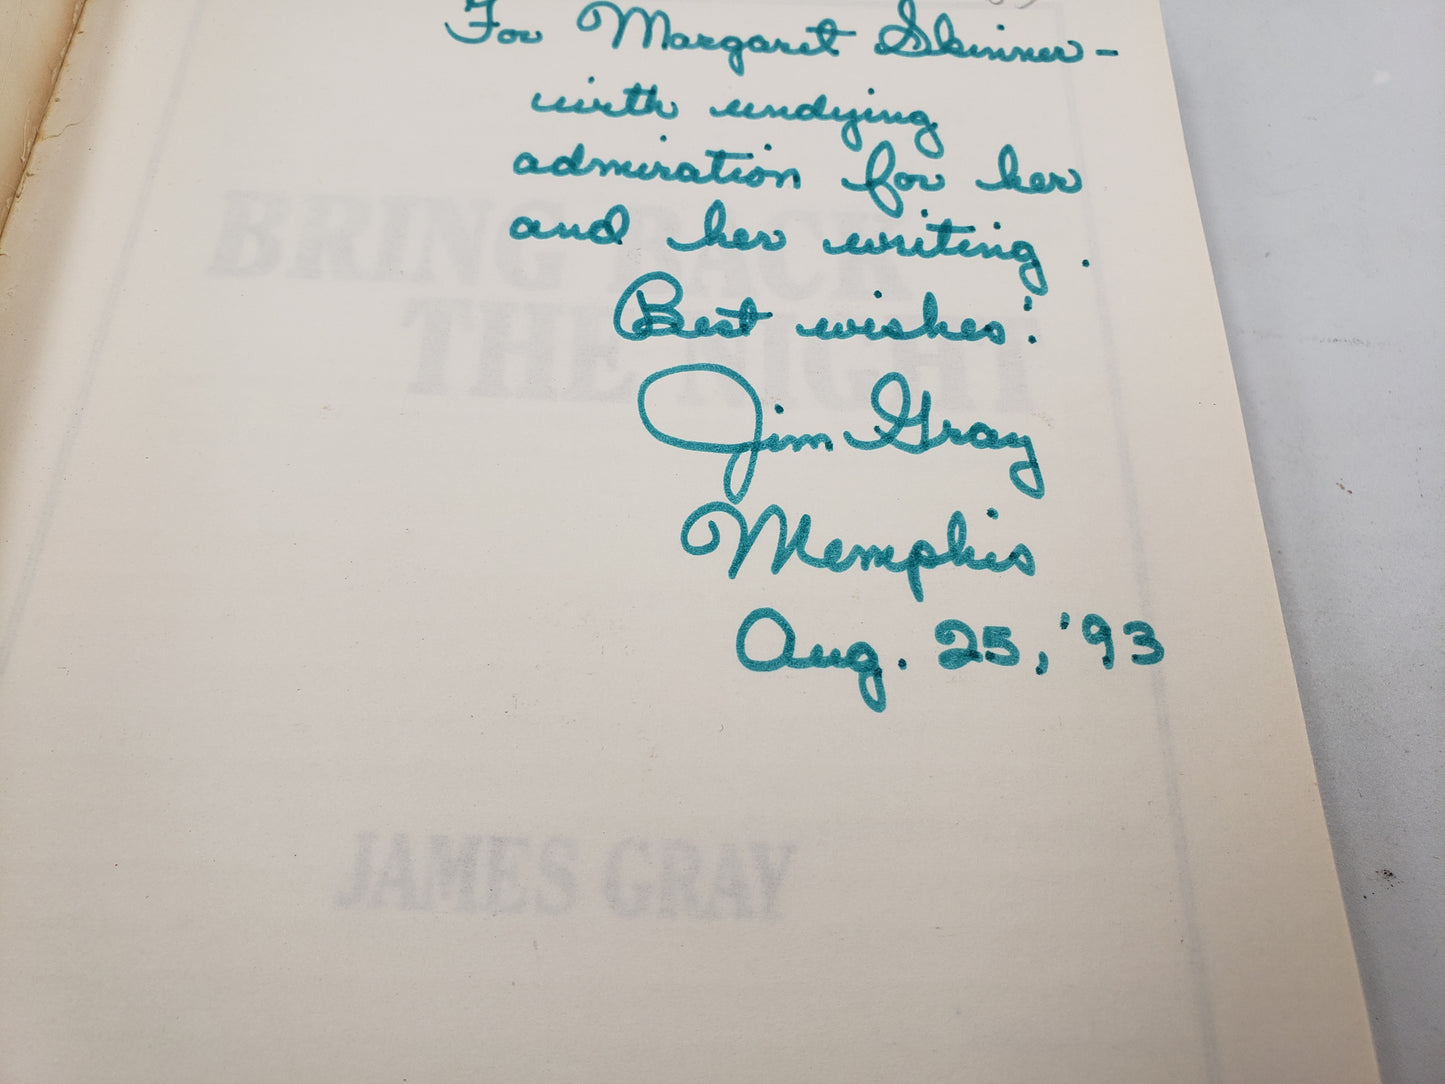 For Margaret Skinner-
with undying
admiration for her
and her writing.
BRING BACK
Best wishes!
THE NIGHT
Jim Gray
Memphis
Aug. 25, '93
JAMES GRAY